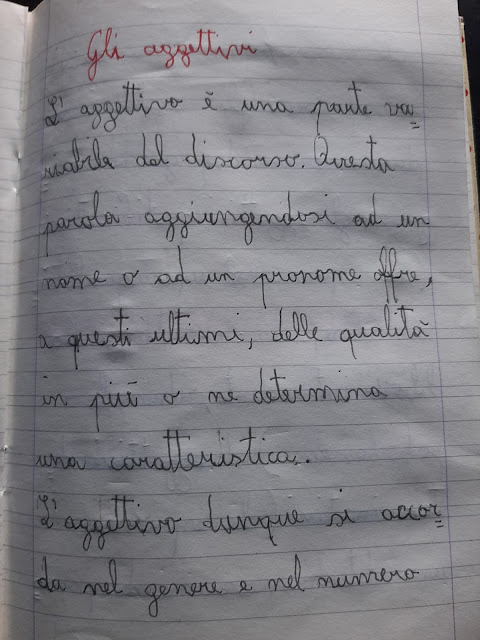 Gli aggettivi
L'aggettivo è una parte va=
riabile del discorso. Questa
parola aggiungendosi ad un
nome o ad un pronome offre,
a questi ultimi, delle qualità
in più o ne determina
una caratteristica.
L'aggettivo dunque si accor=
da nel genere e nel numero